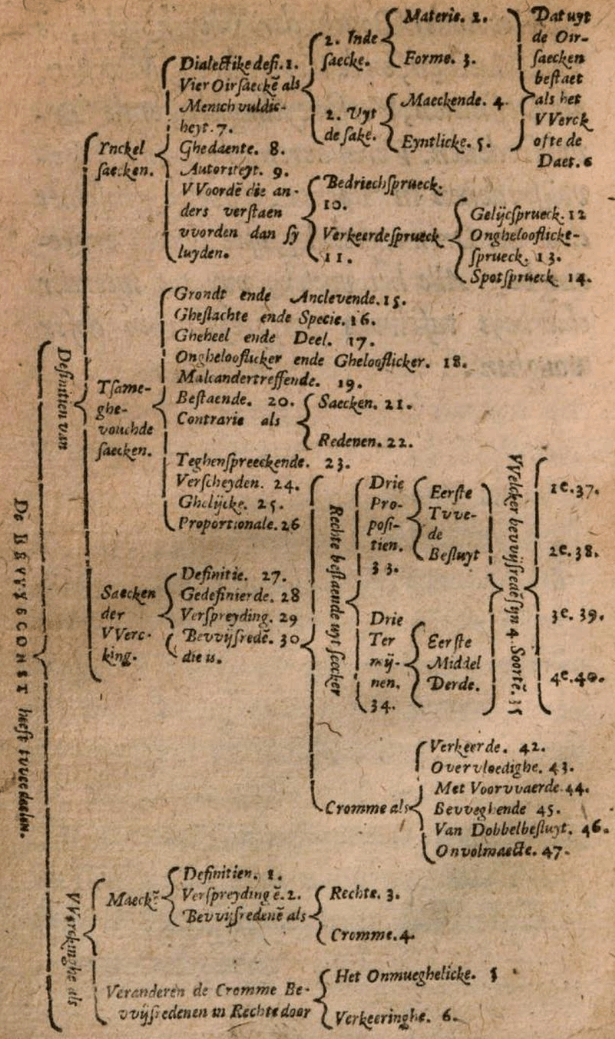 De BEVVYSCONST heeft tvveedeelen.
Definitien van
Ynckel
saecken.
Dialectike defi. 1.
Vier Oirsaeckē als
Menichvuldic-
heyt. 7.
Ghedaente. 8.
Autoriteyt. 9.
VVoordē die an-
ders verstaen
vvorden dan sy
luyden.
2. Inde
saecke.
Materie. 2.
Forme. 3.
2. Vyt
de sake.
Maeckende. 4.
Eyntlicke. 5.
Dat uyt
de Oir-
saecken
bestaet
als het
VVerck
ofte de
Daet. 6
Bedriechsprueck.
10.
Verkeerdesprueck
11.
Gelijcsprueck. 12
Onghelooflicke-
sprueck. 13.
Spotsprueck. 14.
Tsame-
ghe-
vouchde
saecken.
Grondt ende Anclevende. 15.
Gheslachte ende Specie. 16.
Gheheel ende Deel. 17.
Onghelooflicker ende Ghelooflicker. 18.
Malcandertreffende. 19.
Bestaende. 20.
Contrarie als
Saecken. 21.
Redenen. 22.
Teghenspreeckende. 23.
Verscheyden. 24.
Ghelijcke. 25.
Proportionale. 26
Saecken
der
VVerc-
king.
Definitie. 27.
Gedefinierde. 28
Verspreyding. 29
Bevvijsredē. 30
die is.
Rechte bestaende uyt seecker
Drie
Pro-
positi-
tien.
33.
Eerste
Tvve-
de
Besluyt
Drie
Ter
mij-
nen.
34.
Eerste
Middel
Derde.
VVelcker bevvijsredēsijn 4. Soortē. 35
1e. 37.
2e. 38.
3e. 39.
4e. 40.
Cromme als
Verkeerde. 42.
Overvloedighe. 43.
Met Voorvvaerde. 44.
Bevveghende 45.
Van Dobbelbesluyt. 46.
Onvolmaecte. 47.
VVerckinghe als
Maeckē
Definitien. 1.
Verspreydingē. 2.
Bevvijsredenē als
Rechte. 3.
Cromme. 4.
Veranderen de Cromme Be-
vvijsredenen in Rechte door
Het Onmueghelicke. 5
Verkeeringhe. 6.